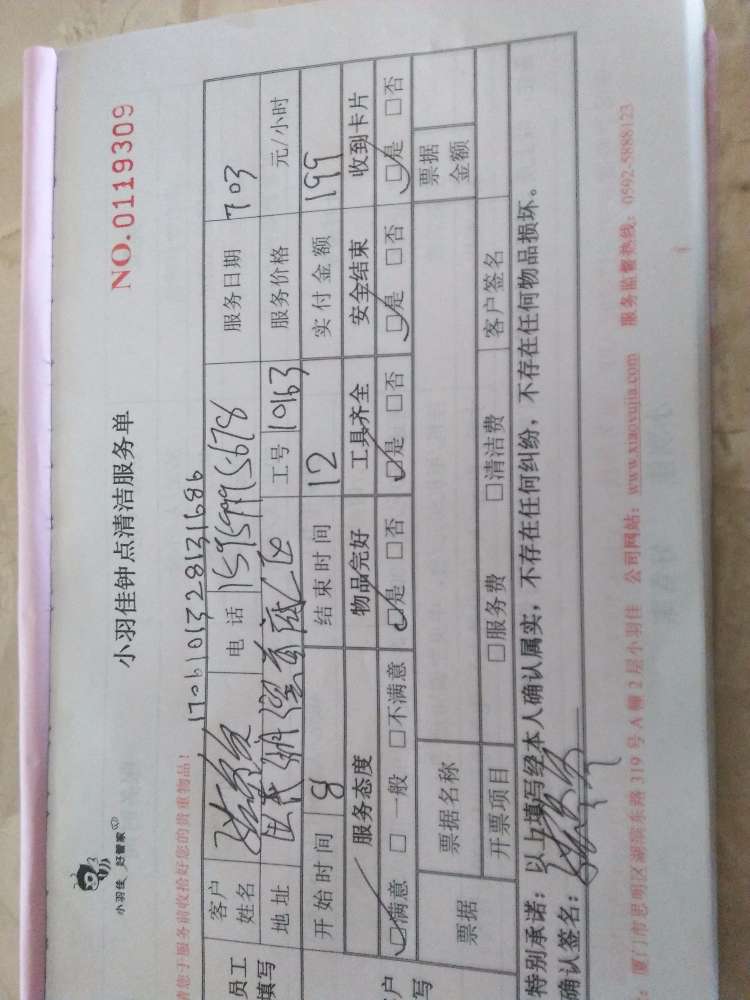 小羽佳 好管家
小羽佳钟点清洁服务单
NO.0119309
请您于服务前收拾好您的贵重物品!
1706101328131686
员工填写
客户姓名 电话 15959995678 服务日期 703
地址 工号 10163 服务价格 元/小时
开始时间 8 结束时间 12 实付金额 199
服务态度 物品完好 工具齐全 安全结束 收到卡片
□满意 □一般 □不满意 □是 □否 □是 □否 □是 □否 □是 □否
票据 票据名称 票据金额
开票项目 □服务费 □清洁费 客户签名
特别承诺:以上填写经本人确认属实,不存在任何纠纷,不存在任何物品损坏。
确认签名:
厦门市思明区湖滨东路319号A幢2层小羽佳 公司网站:www.xiaoyujia.com 服务监督热线:0592-5888123